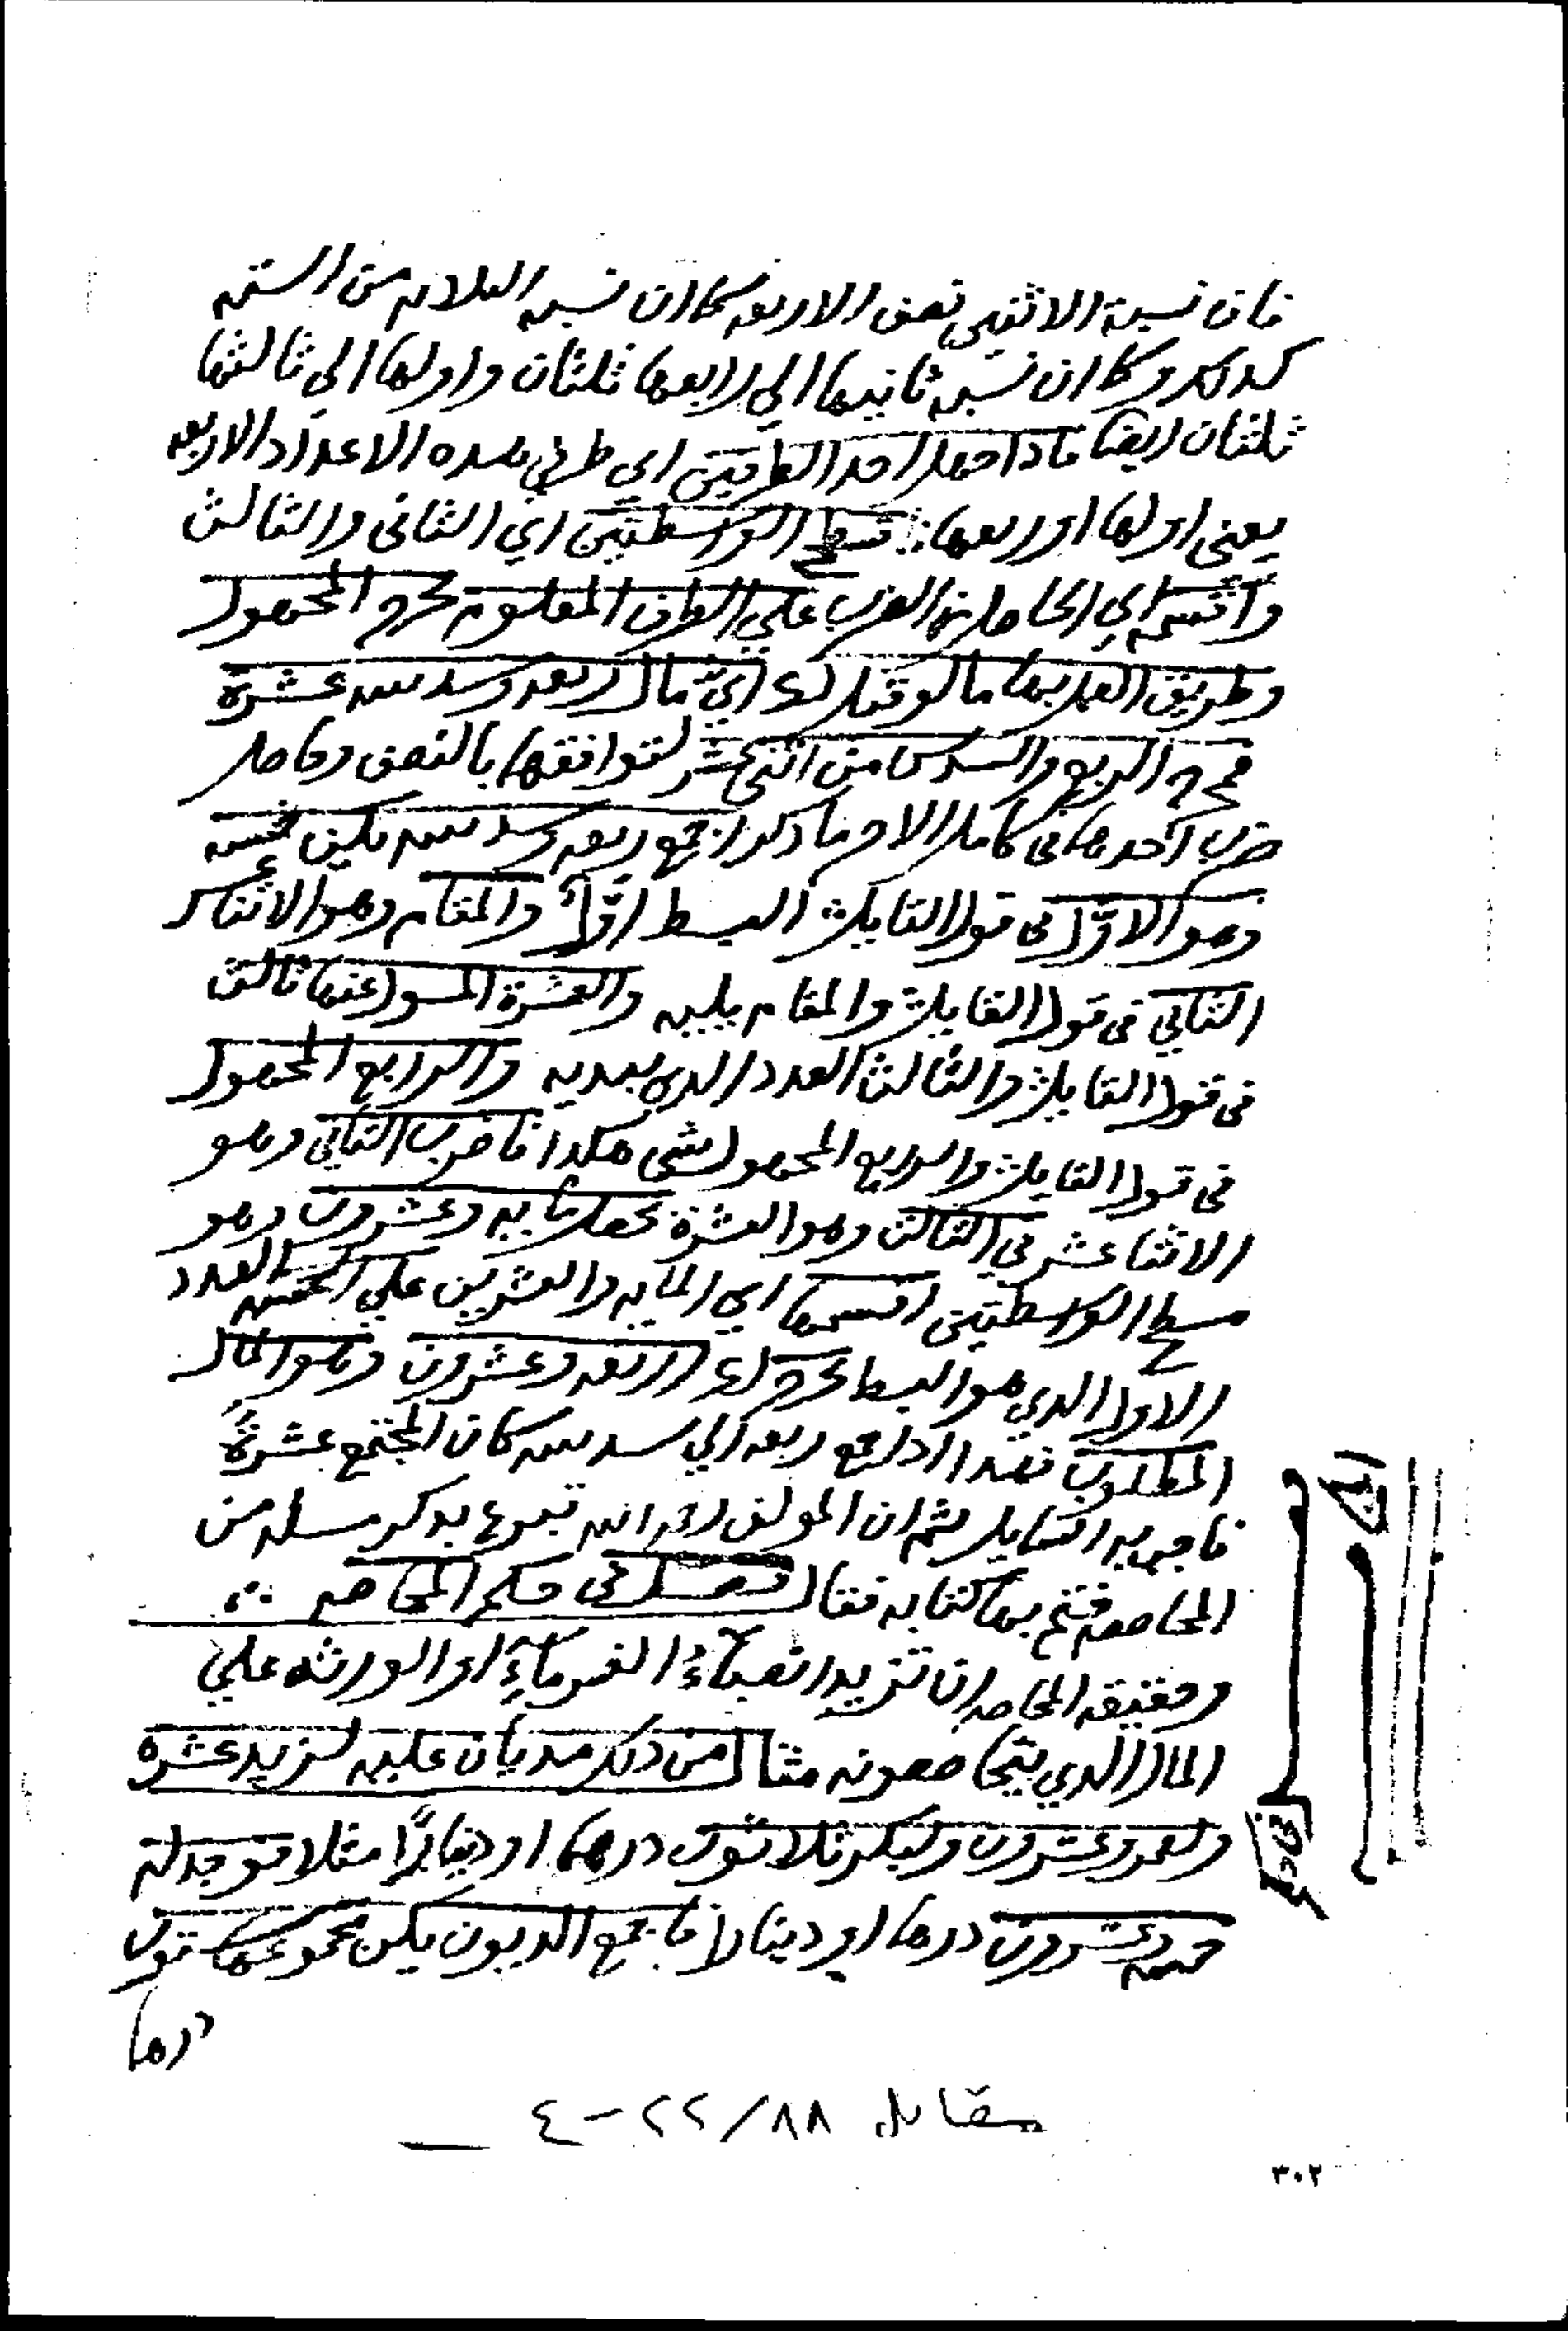 فان نسبة الاثنين نصف الاربعه كما ان نسبه الثلاثه من الستة
كذلك وكما ان نسبه ثانيها الي رابعها ثلثان واولها الي ثالثها
ثلثان ايضا فاذا جهل احد الطرفين اي طرفي هذه الاعداد الاربعه
يعني اولها او رابعها فسطح الواسطتين اي الثاني والثالث
واقسمه اي الحاصل من الضرب علي الطرف المعلوم يخرج المجهول
وطريق العمل بها ما لو قيل لك اي مال ربعه وسدسه عشرة
فمخرج الربع والسدس من اثني عشر لتوافقهما بالنصف وحاصل
ضرب احدهما في كامل الاخر ما ذكر اجمع ربعه وسدسه يكن خمسه
وهو الاول في قول القايل البسط اولا والمقام وهو الاثنا عشر
الثاني في قول القايل والمقام يليه والعشرة المسول عنها ثالث
في قول القايل والثالث العدد الذي يبديه والرابع المجهول
في قول القايل والرابع المجهول شي هكذا فاضرب الثاني وهو
الاثنا عشر في الثالث وهو العشرة يحصل مايه وعشرون وهو
مسطح الواسطتين اقسمها اي المايه والعشرين علي الخمسه العدد
الاول الذي هو البسط يخرج لك اربعه وعشرون وهو المال
المطلوب فهذا اذا جمع ربعه الي سدسه كان المجتمع عشرةً
فاجب به القايل ثم ان المولف رحمه الله تبرع بذكر مسله من
المحاصه ختم بها كتابه فقال فصل في حكم المحاصه
وحقيقه المحاصه ان تزيد انصباءُ الغرماءِ او الورثه علي
المال الذي يتحاصصونه مثال من ذلك مديان عليه لزيد عشره
ولعمر وعشرون ولبكر ثلاثون درهما او دينارًا مثلا فوجد له
خمسه وعشرون درهما او دينارا فاجمع الديون يكن مجموعها ستون
درهما
مقابل ٨٨/٢٢-٤
٣٠٢